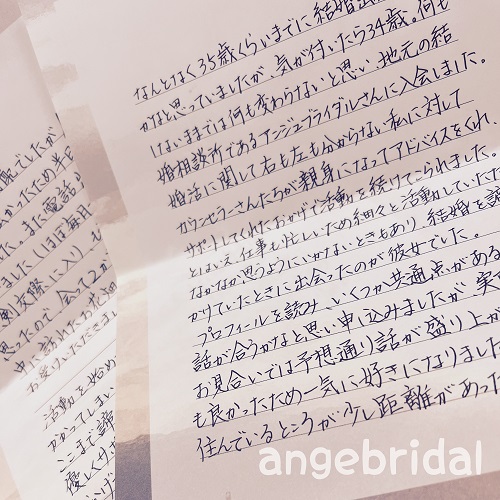 なんとなく35歳くらいまでに結婚出
かなと思っていましたが、気が付いたら34歳。何も
しないままでは何も変わらないと思い、地元の結
婚相談所であるアンジュブライダルさんに入会しました。
婚活に関して右も左も分からない私に対して
カウンセラーさんたちが親身になってアドバイスをくれ、
サポートしてくれたおかげで活動を続けてこられました。
とはいえ、仕事も忙しいため細々と活動していたた
なかなか思うようにいかないときもあり、結婚を諦
かけていたときに出会ったのが彼女でした。
プロフィールを読み、いくつか共通点がある
話が合うかなと思い申し込みましたが、実
お見合いでは予想通り話が盛り上が
も良かったため一気に好きになりました
住んでいるところが少し距離があった
でしたが
かったため半
した。また電話
ました(ほぼ毎日
交際に入り、
思ったので、会って2か
お受けいただきまし
活動を始め
かってしまい
ここまで諦
優しくサ
angebridal